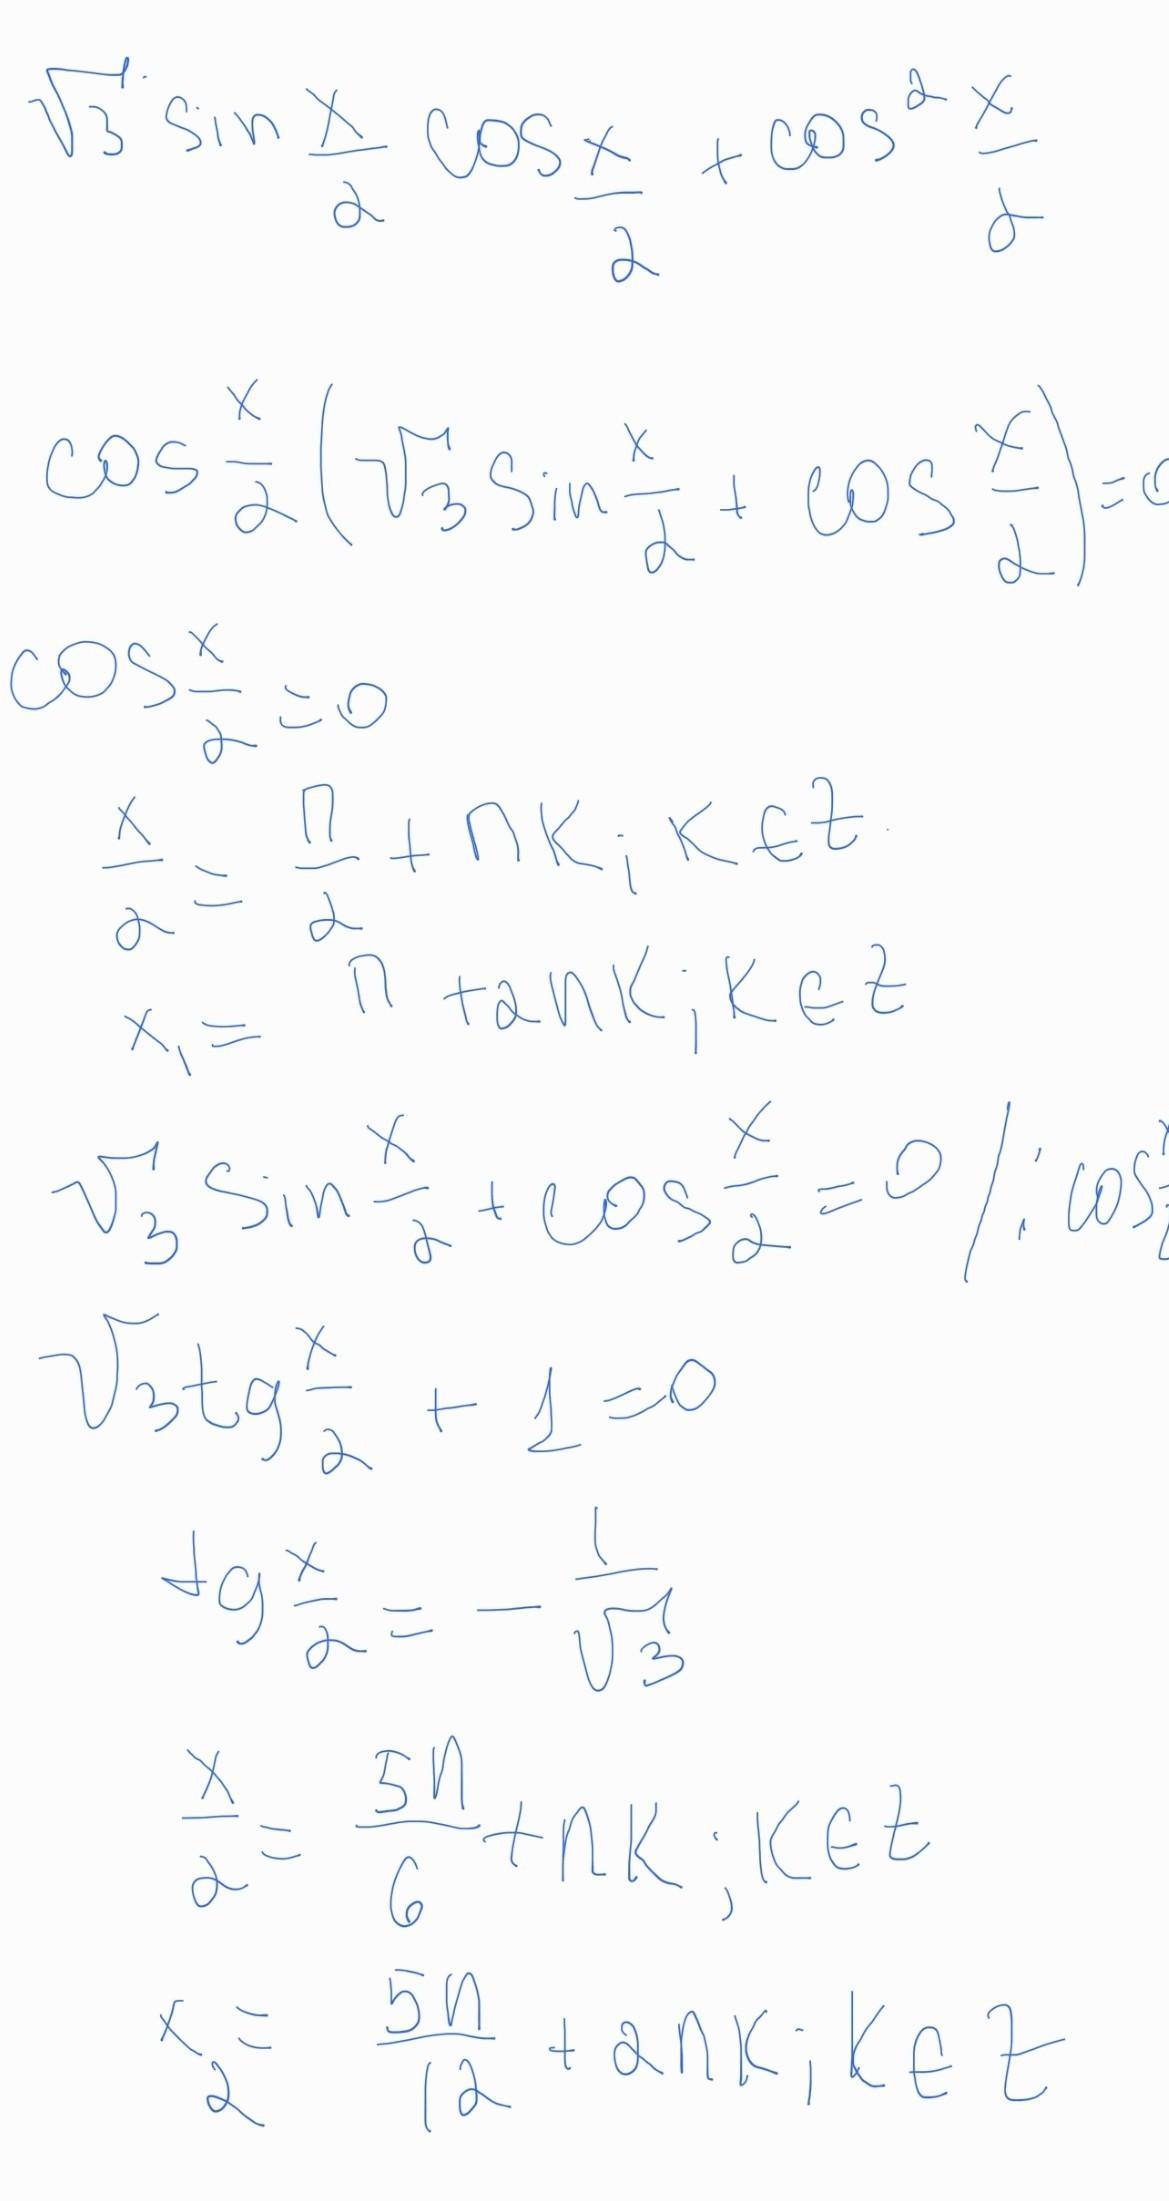 √3 sin x/2 cos x/2 + cos² x/2
cos x/2 (√3 sin x/2 + cos x/2) = 0
cos x/2 = 0
x/2 = π/2 + πk; k ∈ Z
x₁ = π + 2πk; k ∈ Z
√3 sin x/2 + cos x/2 = 0 /: cos x/2
√3 tg x/2 + 1 = 0
tg x/2 = - 1/√3
x/2 = 5π/6 + πk; k ∈ Z
x₂ = 5π/12 + 2πk; k ∈ Z